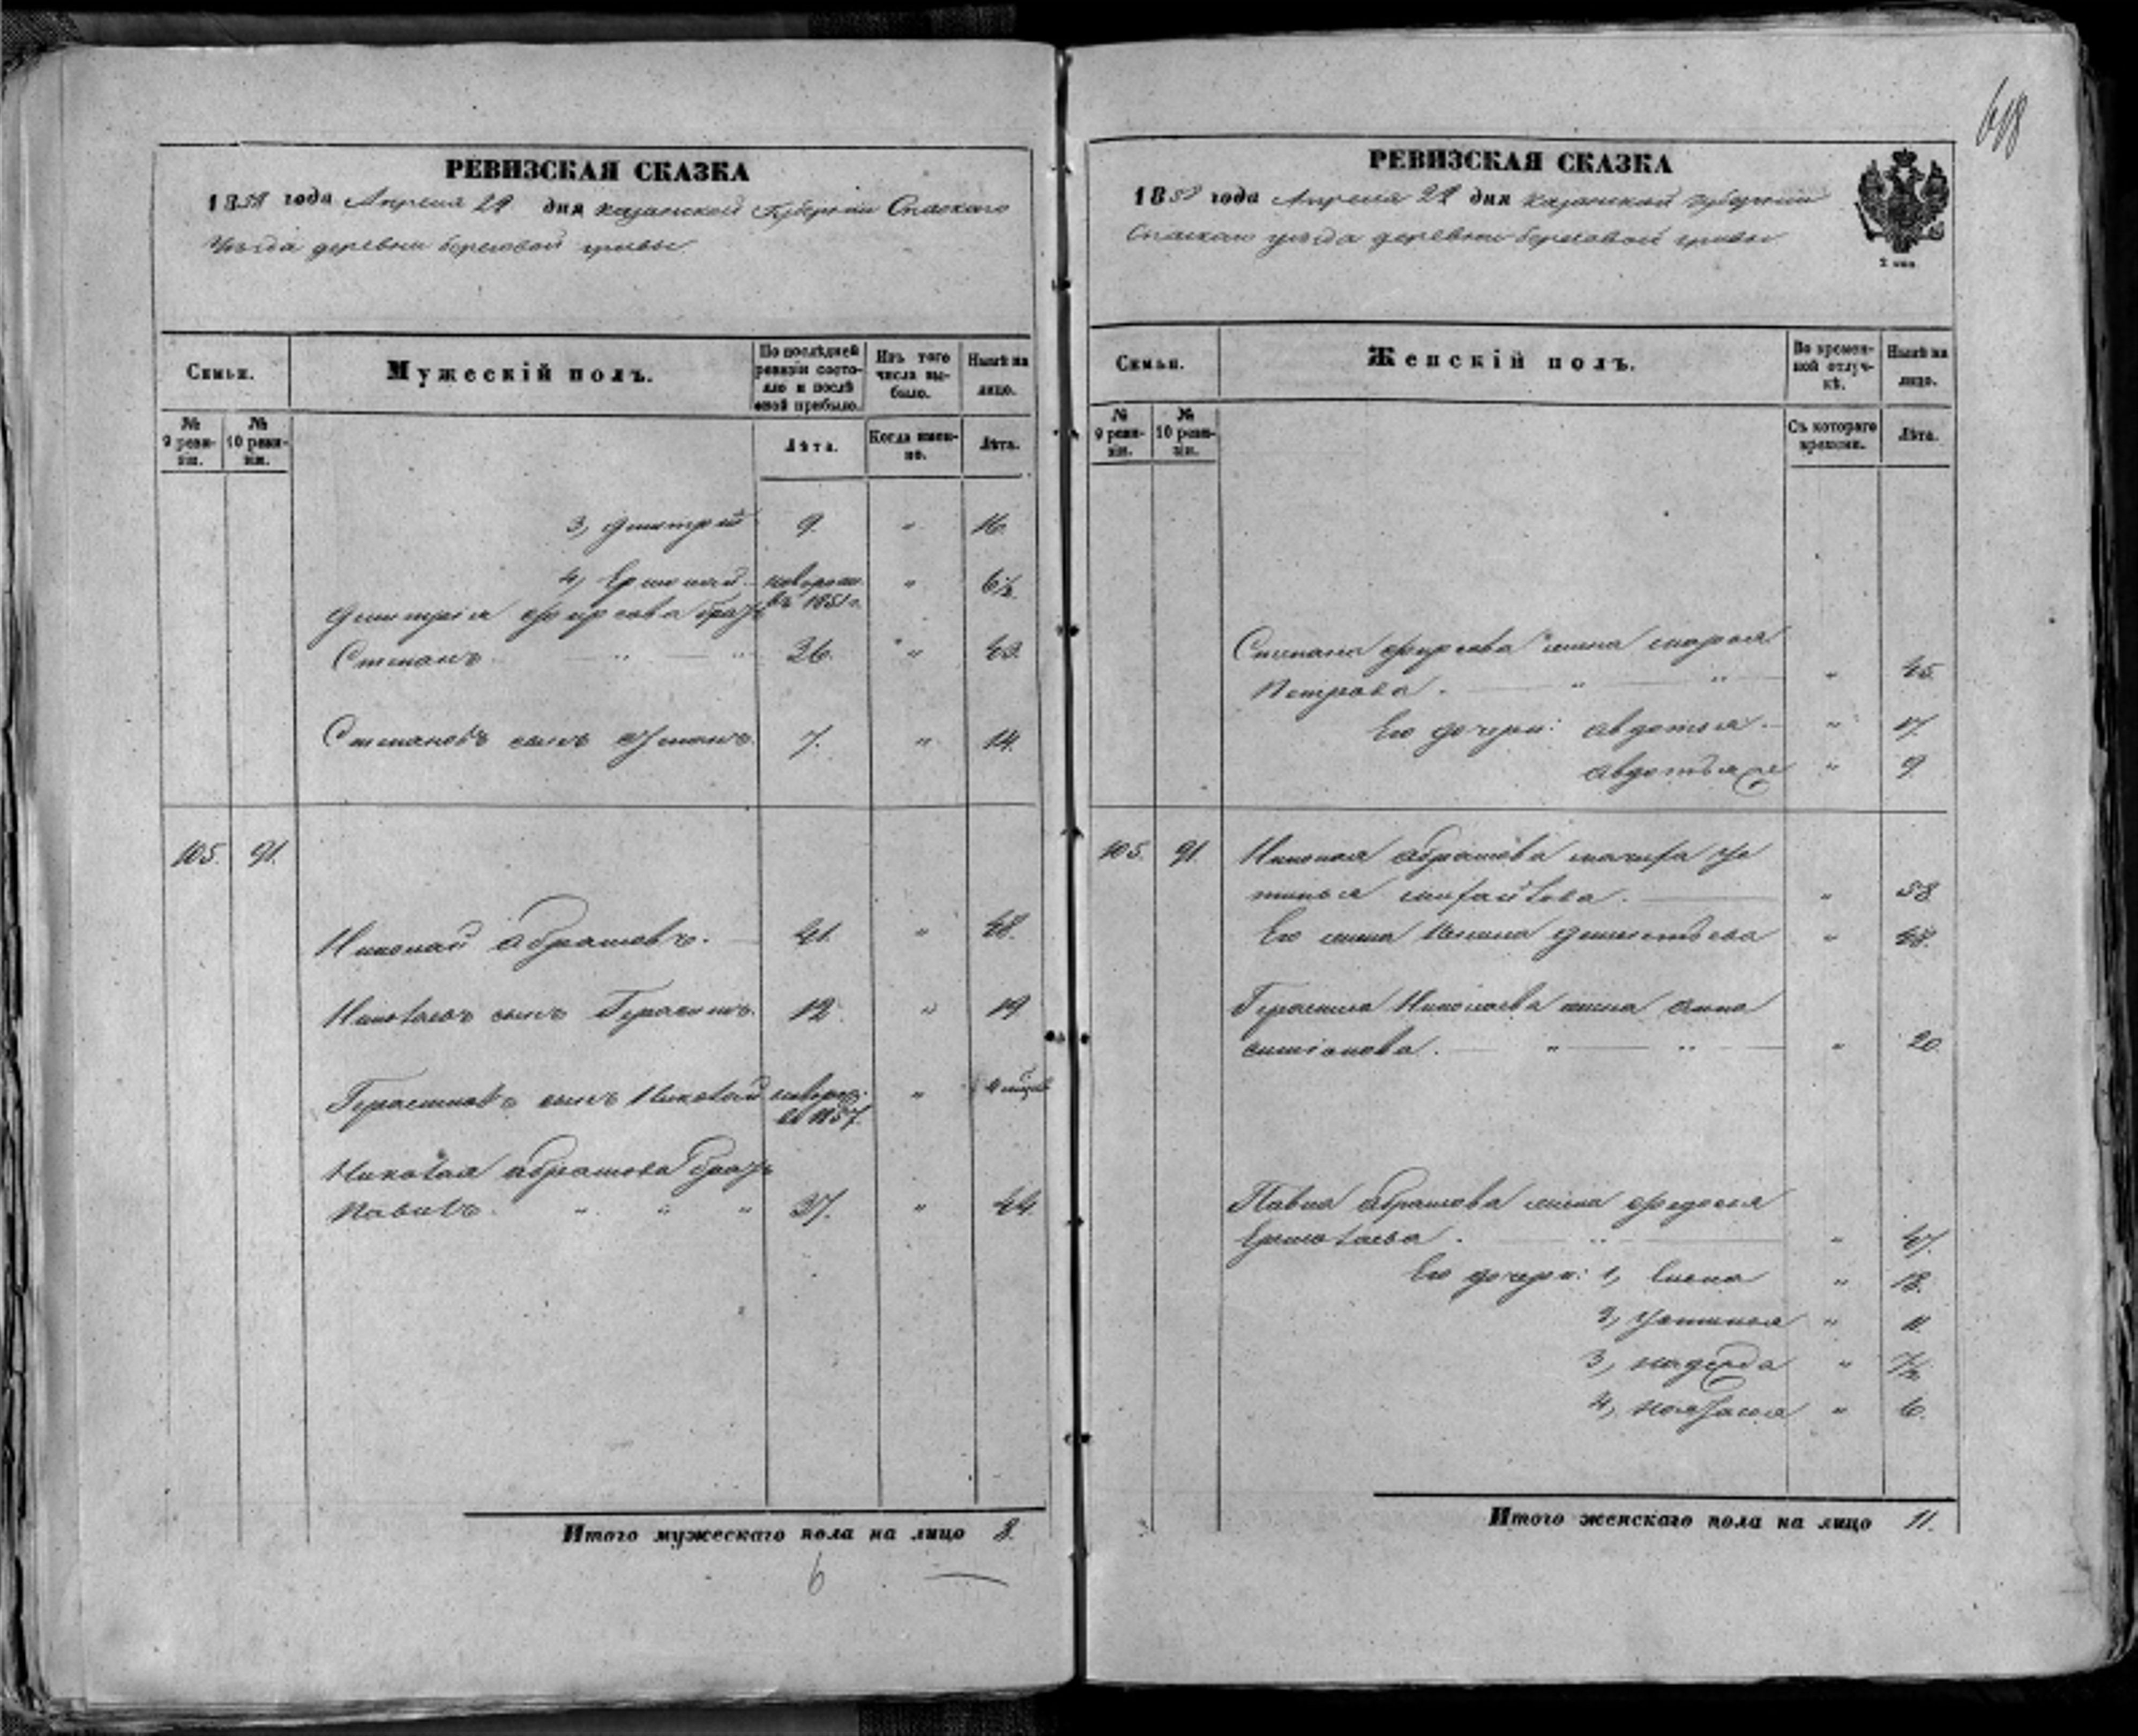 618
РЕВИЗСКАЯ СКАЗКА
1858 года Апреля 29 дня Казанской Губернии Спаскаго
Уѣзда деревни береговой гривы
Семьи.
Мужескій полъ.
По послѣдней ревизіи состояло и послѣ оной прибыло.
Изъ того числа выбыло.
Нынѣ на лицо.
№ 9 ревизіи.
№ 10 ревизіи.
Лѣта.
Когда именно.
Лѣта.
3, Дмитрей 9. " 16.
4, Ермолай новорож. въ 1851 г. " 6½
Дмитрія Фирсова братъ
Степанъ 26. " 43.
Степановъ сынъ 7. " 14.
105. 91.
Николай Абрамовъ. 41. " 48.
Николаевъ сынъ Герасимъ. 12. " 19
Герасимовъ сынъ Николай новорож. въ 1857. "
Николая Абрамова братъ
Павелъ. " " " 37. " 44.
Итого мужескаго пола на лицо 8.
6
РЕВИЗСКАЯ СКАЗКА
1858 года Апреля 29 дня Казанской Губерніи
Спаскаго уѣзда деревни береговой гривы
2 коп.
Семьи.
Женскій полъ.
Во временной отлучкѣ.
Нынѣ на лицо.
№ 9 ревизіи.
№ 10 ревизіи.
Съ котораго времени.
Лѣта.
Степана Фирсова жена Марья
Петрова. " 45.
Его дочери: Авдотья. " 17.
Авдотья же " 9
105. 91. Николая Абрамова мачиха Ус
тинья Михайлова. " 58
Его жена Дементьева " 48.
Герасима Николаева жена Анна
" 20.
Павла Абрамова жена Федосья
Ермолаева. " 47.
Его дочери: 1, Елена " 18.
2, Устинья " 11.
3, Надежда " 7½
4, Настасья " 6.
Итого женскаго пола на лицо 11.